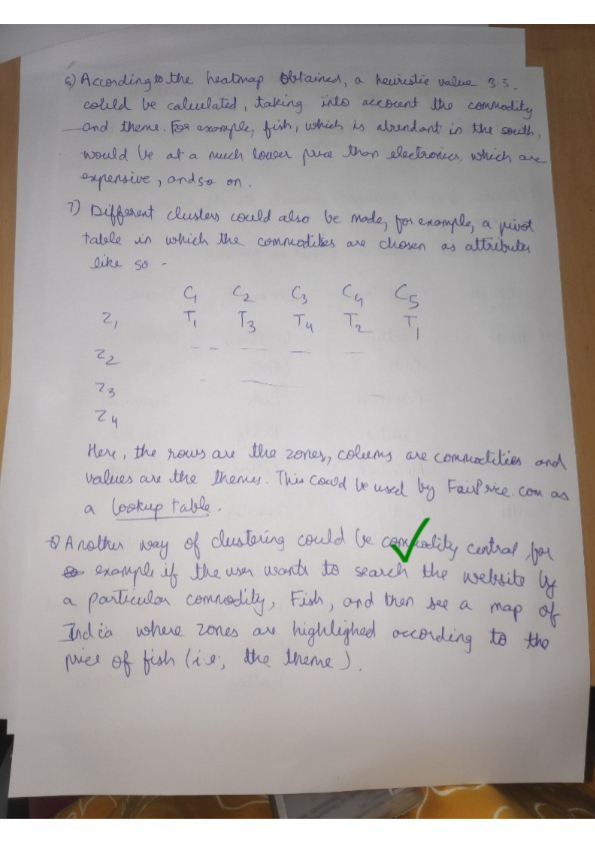 6) According to the heatmap obtained, a heuristic value 3.5.
could be calculated, taking into account the commodity
and theme. For example, fish, which is abundant in the south,
would be at a much lower price than electronics which are
expensive, and so on.
7) Different clusters could also be made, for example, a pivot
table in which the commodities are chosen as attributes
like so -
C1 C2 C3 C4 C5
Z1 T1 T3 T4 T2 T1
Z2
Z3
Z4
Here, the rows are the zones, colums are commodities and
values are the themes. This could be used by FairPrice.com as
a lookup table.
8) Another way of clustering could be commodity central for
example if the user wants to search the website by
a particular commodity, Fish, and then see a map of
India where zones are highlighed according to the
price of fish (i.e; the theme).